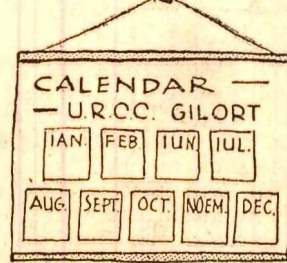 CALENDAR —
— U.R.C.C. GILORT
IAN. FEB IUN. IUL.
AUG. SEPT. OCT. NOEM. DEC.